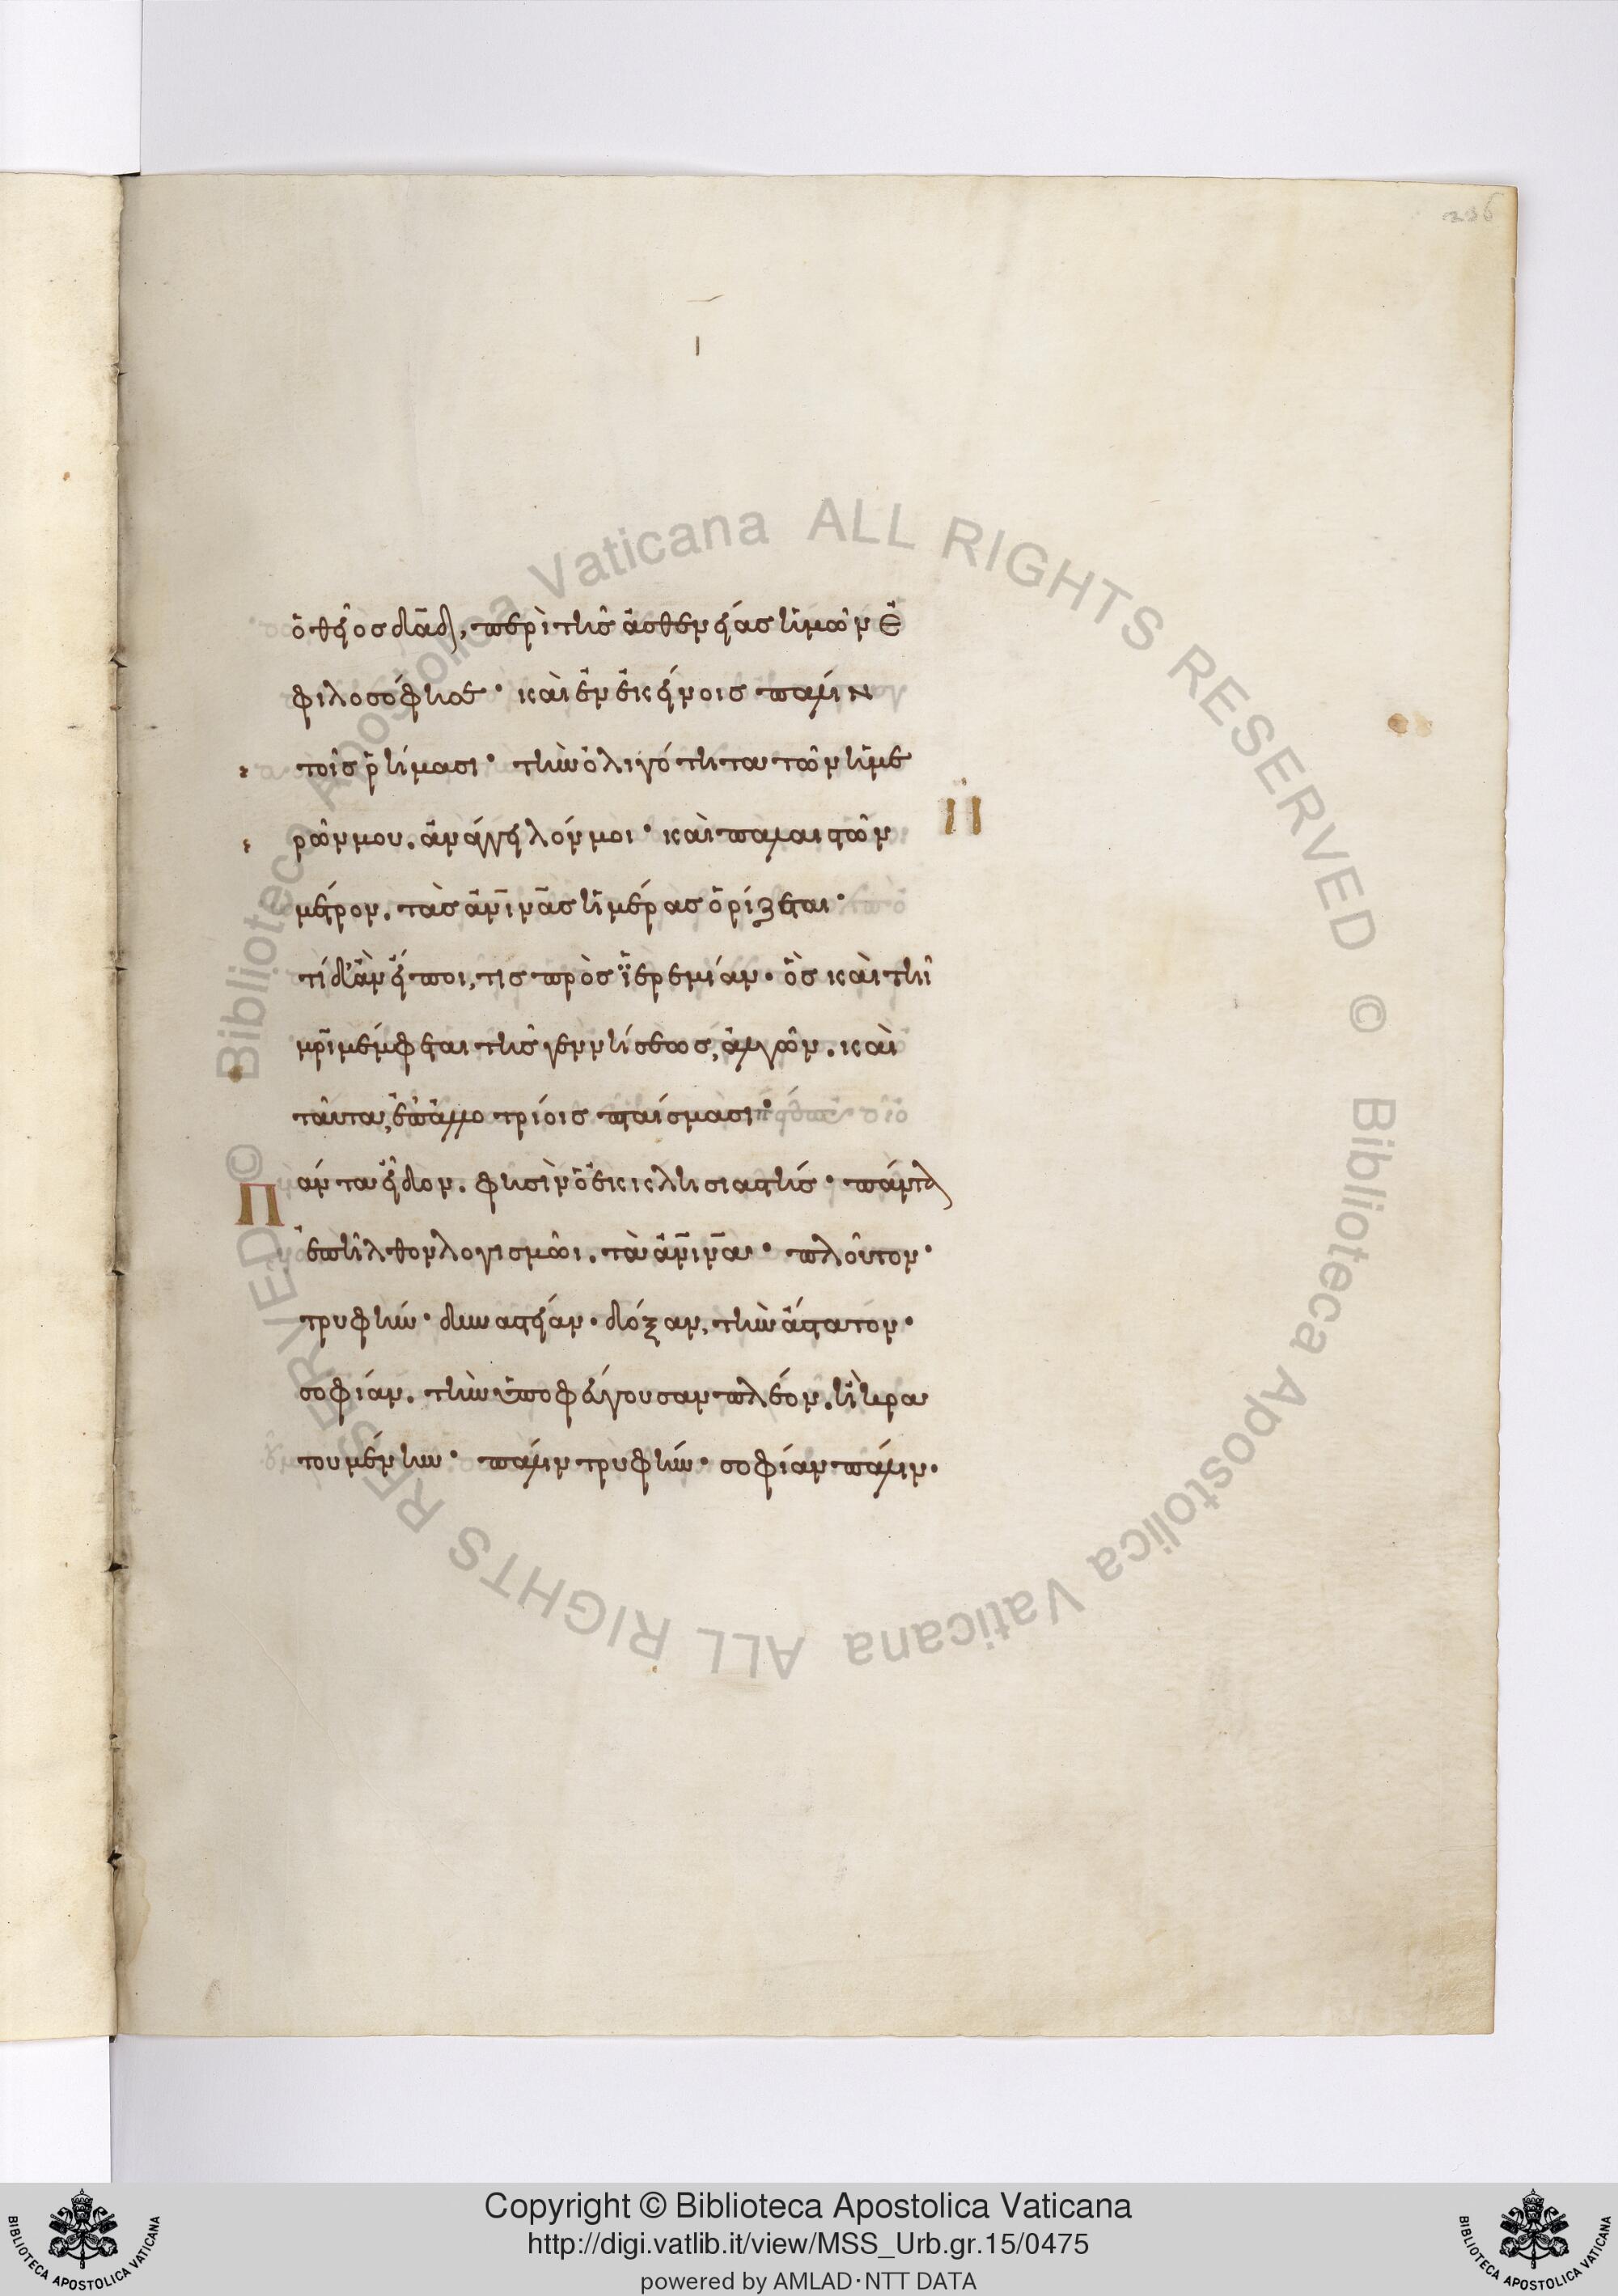 236
ὁ θεῖος δᾱδ, περὶ τῆς ἀσθενείας ἡμῶν ἐ
φιλοσόφησε· καὶ ἐν ἐκείνοις πάλιν
τοῖς ῥήμασι· τὴν ὀλιγότητα τῶν ἡμε
ρῶν μου. ἀνάγγειλόν μοι· καὶ παλαιστῶν
μέτρον. τὰς ἀν̅ι̅ν̅ας ἡμέρας ὁρίζεται·
τί δ' ἂν εἴποι, τις πρὸς ἱερεμίαν. ὃς καὶ τῆι
μρ̅ι μέμφεται τῆς γεννήσεως, ἀλγῶν. καὶ
ταῦτα, ἐπ' ἀλλοτρίοις πταίσμασι·
Πάντα εἶδον. φησὶν ὁ ἐκκλησιαστής· πάντα
ἐπῆλθον λογισμῶι. τὰ ἀν̅ι̅ν̅α· πλοῦτον·
τρυφήν· δυναστείαν· δόξαν, τὴν ἄστατον·
σοφίαν. τὴν ὑποφεύγουσαν πλέον. ἢ κρα
τουμένην· πάλιν τρυφήν· σοφίαν πάλιν.
Copyright © Biblioteca Apostolica Vaticana
http://digi.vatlib.it/view/MSS_Urb.gr.15/0475
powered by AMLAD·NTT DATA
BIBLIOTECA APOSTOLICA VATICANA
BIBLIOTECA APOSTOLICA VATICANA
© Biblioteca Apostolica Vaticana ALL RIGHTS RESERVED © Biblioteca Apostolica Vaticana ALL RIGHTS RESERVED